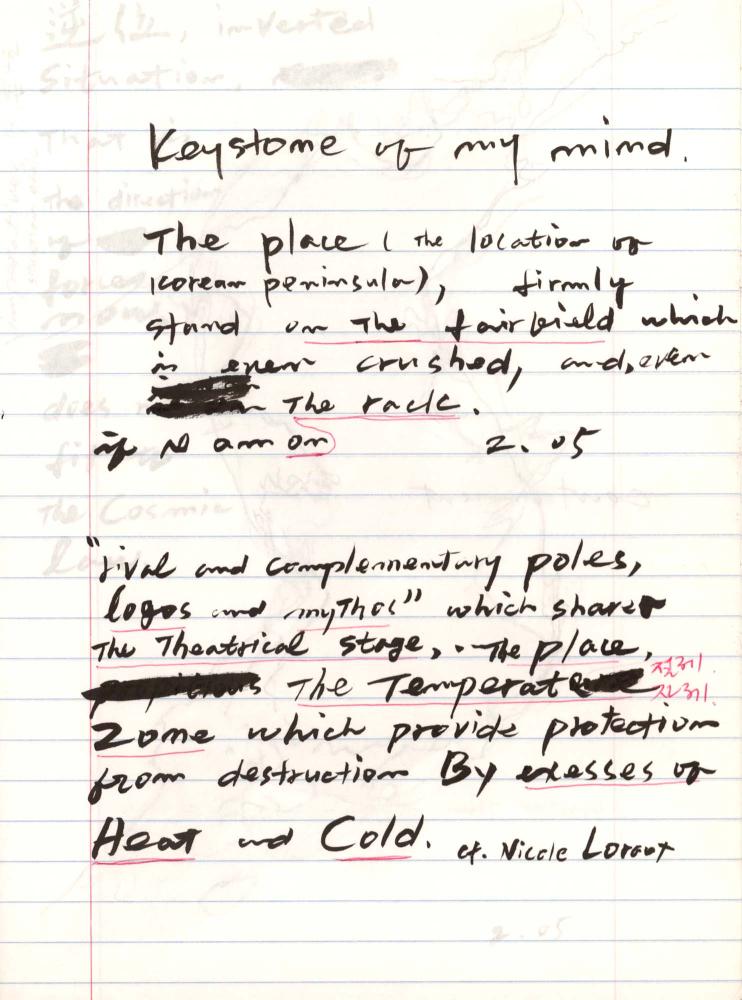 Keystone of my mind.
The place (The location of
Korean peninsula), firmly
stand on The fairfield which
is even crushed, and, even
The rack.
if N am on
2.05
"rival and complementary poles,
logos and mythos" which shares
The Theatrical stage, . The place,
The Temperate
절제.
자제.
Zone which provide protection
from destruction By exesses of
Heat and Cold. cf. Nicole Loraux
逆位, inverted
Situation,
That is
The direction
of
forces
does
The Cosmic
2.05